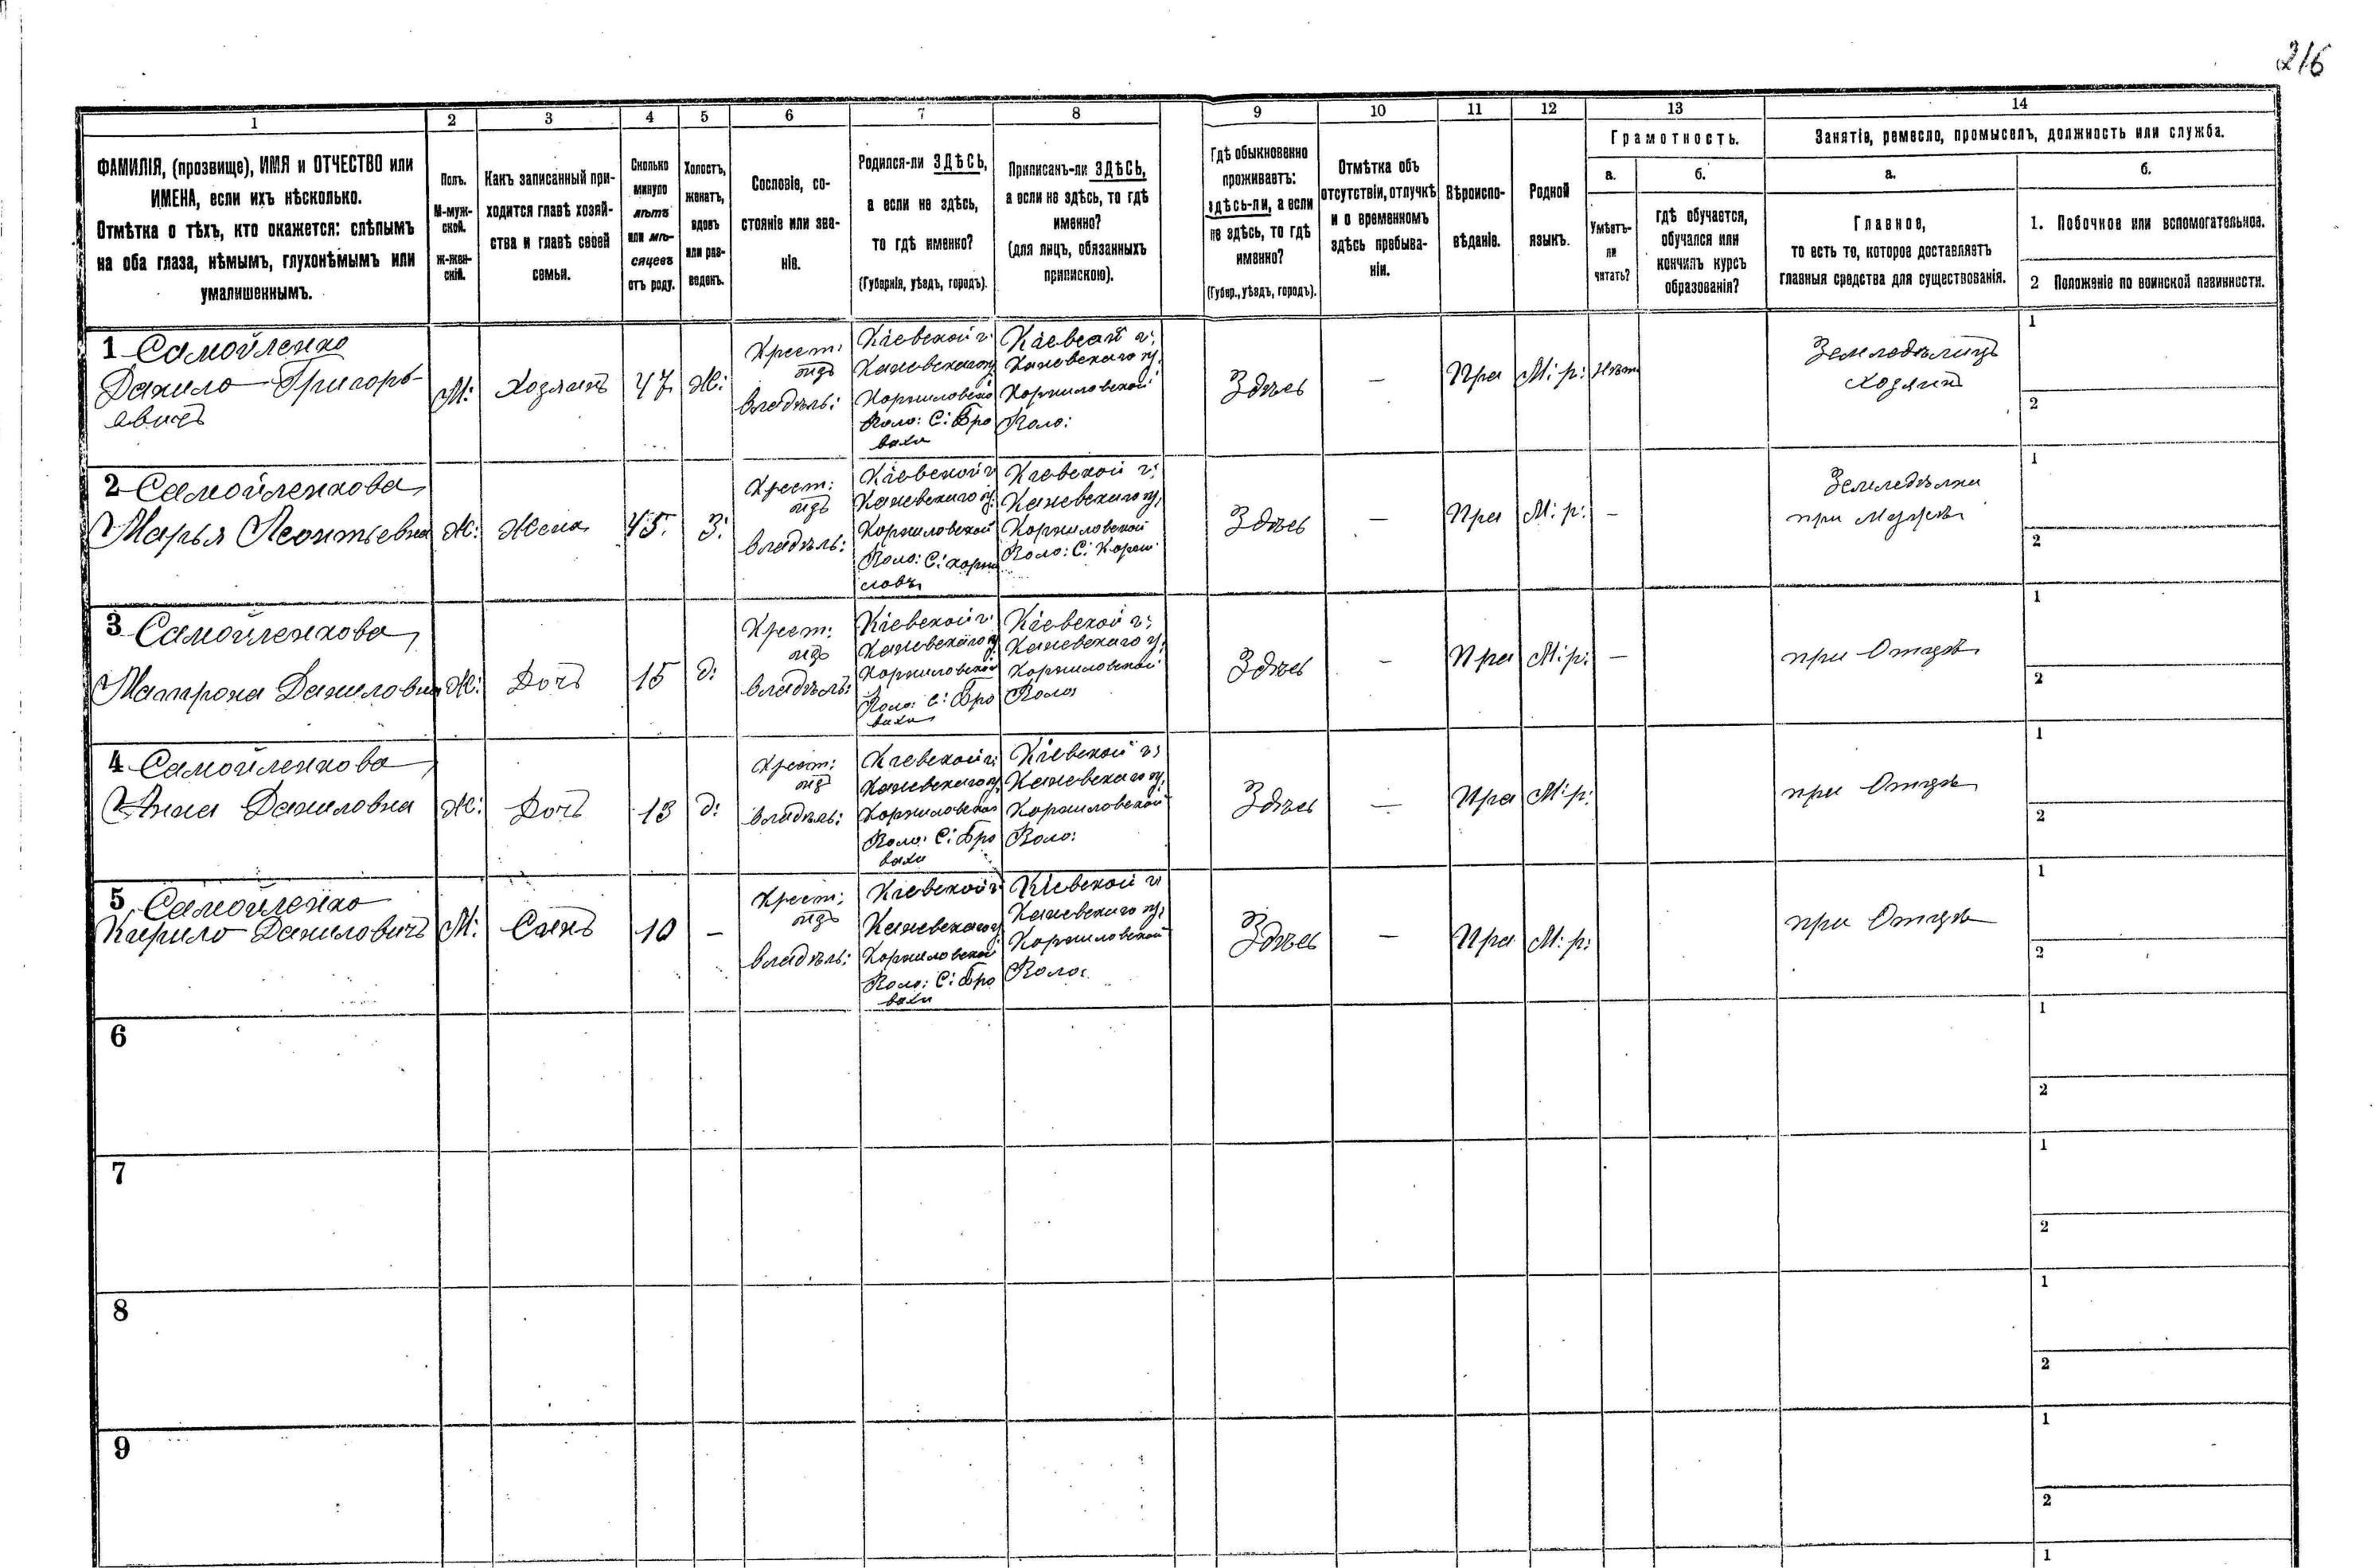 216
1
2
3
4
5
6
7
8
9
10
11
12
13
14
ФАМИЛІЯ, (прозвище), ИМЯ и ОТЧЕСТВО или
ИМЕНА, если ихъ нѣсколько.
Отмѣтка о тѣхъ, кто окажется: слѣпымъ
на оба глаза, нѣмымъ, глухонѣмымъ или
умалишеннымъ.
Полъ.
М-муж-
ской.
ж-жен-
скій.
Какъ записанный при-
ходится главѣ хозяй-
ства и главѣ своей
семьи.
Сколько
минуло
лѣтъ
или мѣ-
сяцевъ
отъ роду.
Холостъ,
женатъ,
вдовъ
или раз-
веденъ.
Сословіе, со-
стояніе или зва-
ніе.
Родился-ли ЗДѢСЬ,
а если не здѣсь,
то гдѣ именно?
(Губернія, уѣздъ, городъ).
Приписанъ-ли ЗДѢСЬ,
а если не здѣсь, то гдѣ
именно?
(для лицъ, обязанныхъ
припискою).
Гдѣ обыкновенно
проживаетъ:
здѣсь-ли, а если
не здѣсь, то гдѣ
именно?
(Губер., уѣздъ, городъ).
Отмѣтка объ
отсутствіи, отлучкѣ
и о временномъ
здѣсь пребыва-
ніи.
Вѣроиспо-
вѣданіе.
Родной
языкъ.
Грамотность.
а.
Умѣетъ-
ли
читать?
б.
гдѣ обучается,
обучался или
кончилъ курсъ
образованія?
Занятіе, ремесло, промыселъ, должность или служба.
а.
Главное,
то есть то, которое доставляетъ
главныя средства для существованія.
б.
1. Побочное или вспомогательное.
2 Положеніе по воинской повинности.
1 Самойленко
Данило Григорь-
евичъ
М:
Хозяинъ
47
Ж:
Крест:
изъ
владѣль:
Кіевской г:
Каневскаго у:
Корниловской
Воло: С: Бро
вахи
Кіевской г:
Каневскаго у:
Корниловской
Воло:
Здѣсь
—
Пра
М: р:
Нѣтъ
Земледѣлецъ
хозяинъ
1
2
2 Самойленкова
Марья Леонтьевна
Ж:
Жена
45.
З:
Крест:
изъ
владѣль:
Кіевской г:
Каневскаго у:
Корниловской
Воло: С: Корни
ловъ
Кіевской г:
Каневскаго у:
Корниловской
Воло: С: Корни
Здѣсь
—
Пра
М: р:
—
Земледѣлка
при Мужѣ
1
2
3 Самойленкова
Матрона Даниловна
Ж:
Дочь
15
д:
Крест:
изъ
владѣль:
Кіевской г:
Каневскаго у:
Корниловской
Воло: С: Бро
вахи
Кіевской г:
Каневскаго у:
Корниловской
Воло:
Здѣсь
—
Пра
М: р:
—
при Отцѣ
1
2
4 Самойленкова
Анна Даниловна
Ж:
Дочь
13
д:
Крест:
изъ
владѣль:
Кіевской г:
Каневскаго у:
Корниловской
Воло: С: Бро
вахи
Кіевской г:
Каневскаго у:
Корниловской
Воло:
Здѣсь
—
Пра
М: р:
при Отцѣ
1
2
5 Самойленко
Кирило Даниловичъ
М:
Сынъ
10
—
Крест:
изъ
владѣль:
Кіевской г:
Каневскаго у:
Корниловской
Воло: С: Бро
вахи
Кіевской г:
Каневскаго у:
Корниловской
Воло:
Здѣсь
—
Пра
М: р:
при Отцѣ
1
2
6
1
2
7
1
2
8
1
2
9
1
2
1